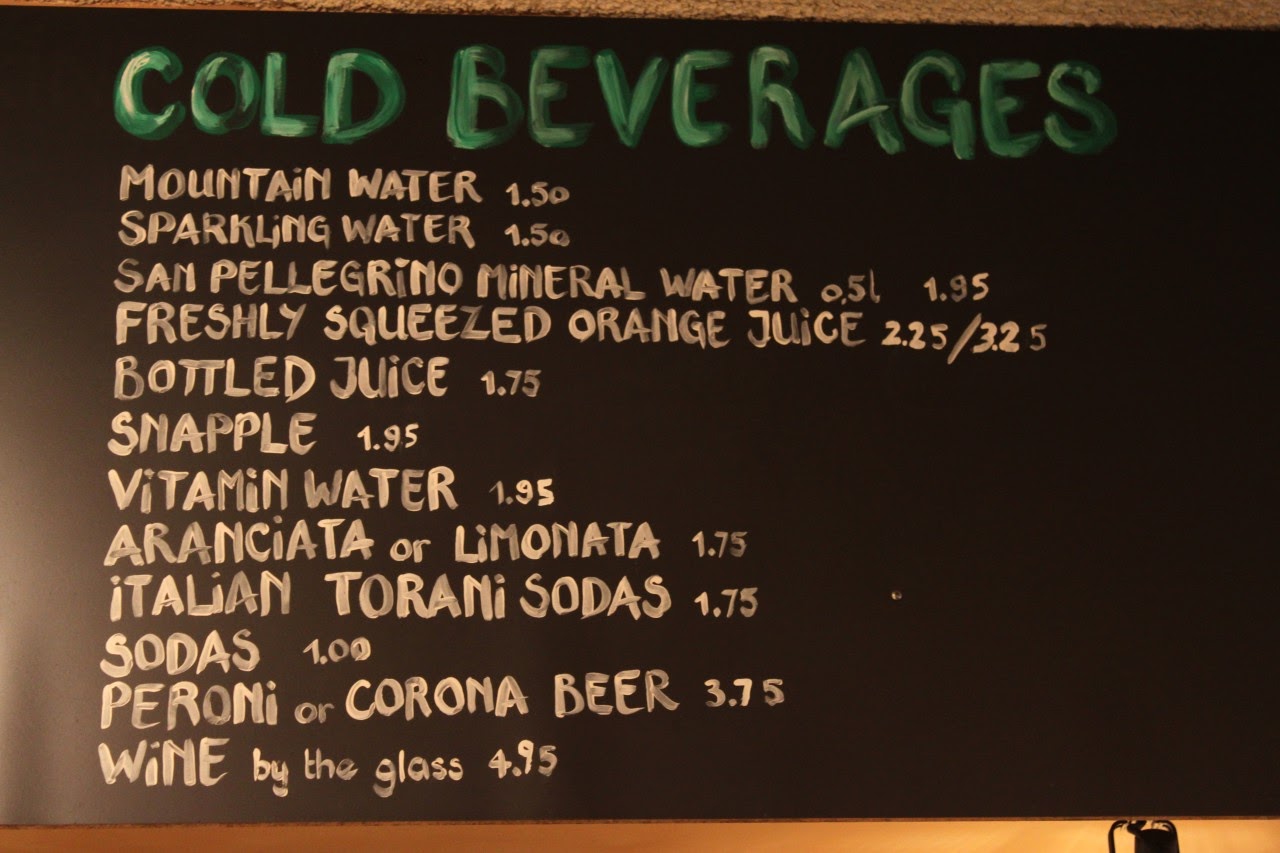 COLD BEVERAGES
MOUNTAiN WATER 1.50
SPARKLiNG WATER 1.50
SAN PELLEGRiNO MiNERAL WATER 0,5l 1.95
FRESHLY SQUEEZED ORANGE JUiCE 2.25/3.25
BOTTLED JUiCE 1.75
SNAPPLE 1.95
ViTAMiN WATER 1.95
ARANCiATA or LiMONATA 1.75
iTALiAN TORANi SODAS 1.75
SODAS 1.00
PERONi or CORONA BEER 3.75
WiNE by the glass 4.95